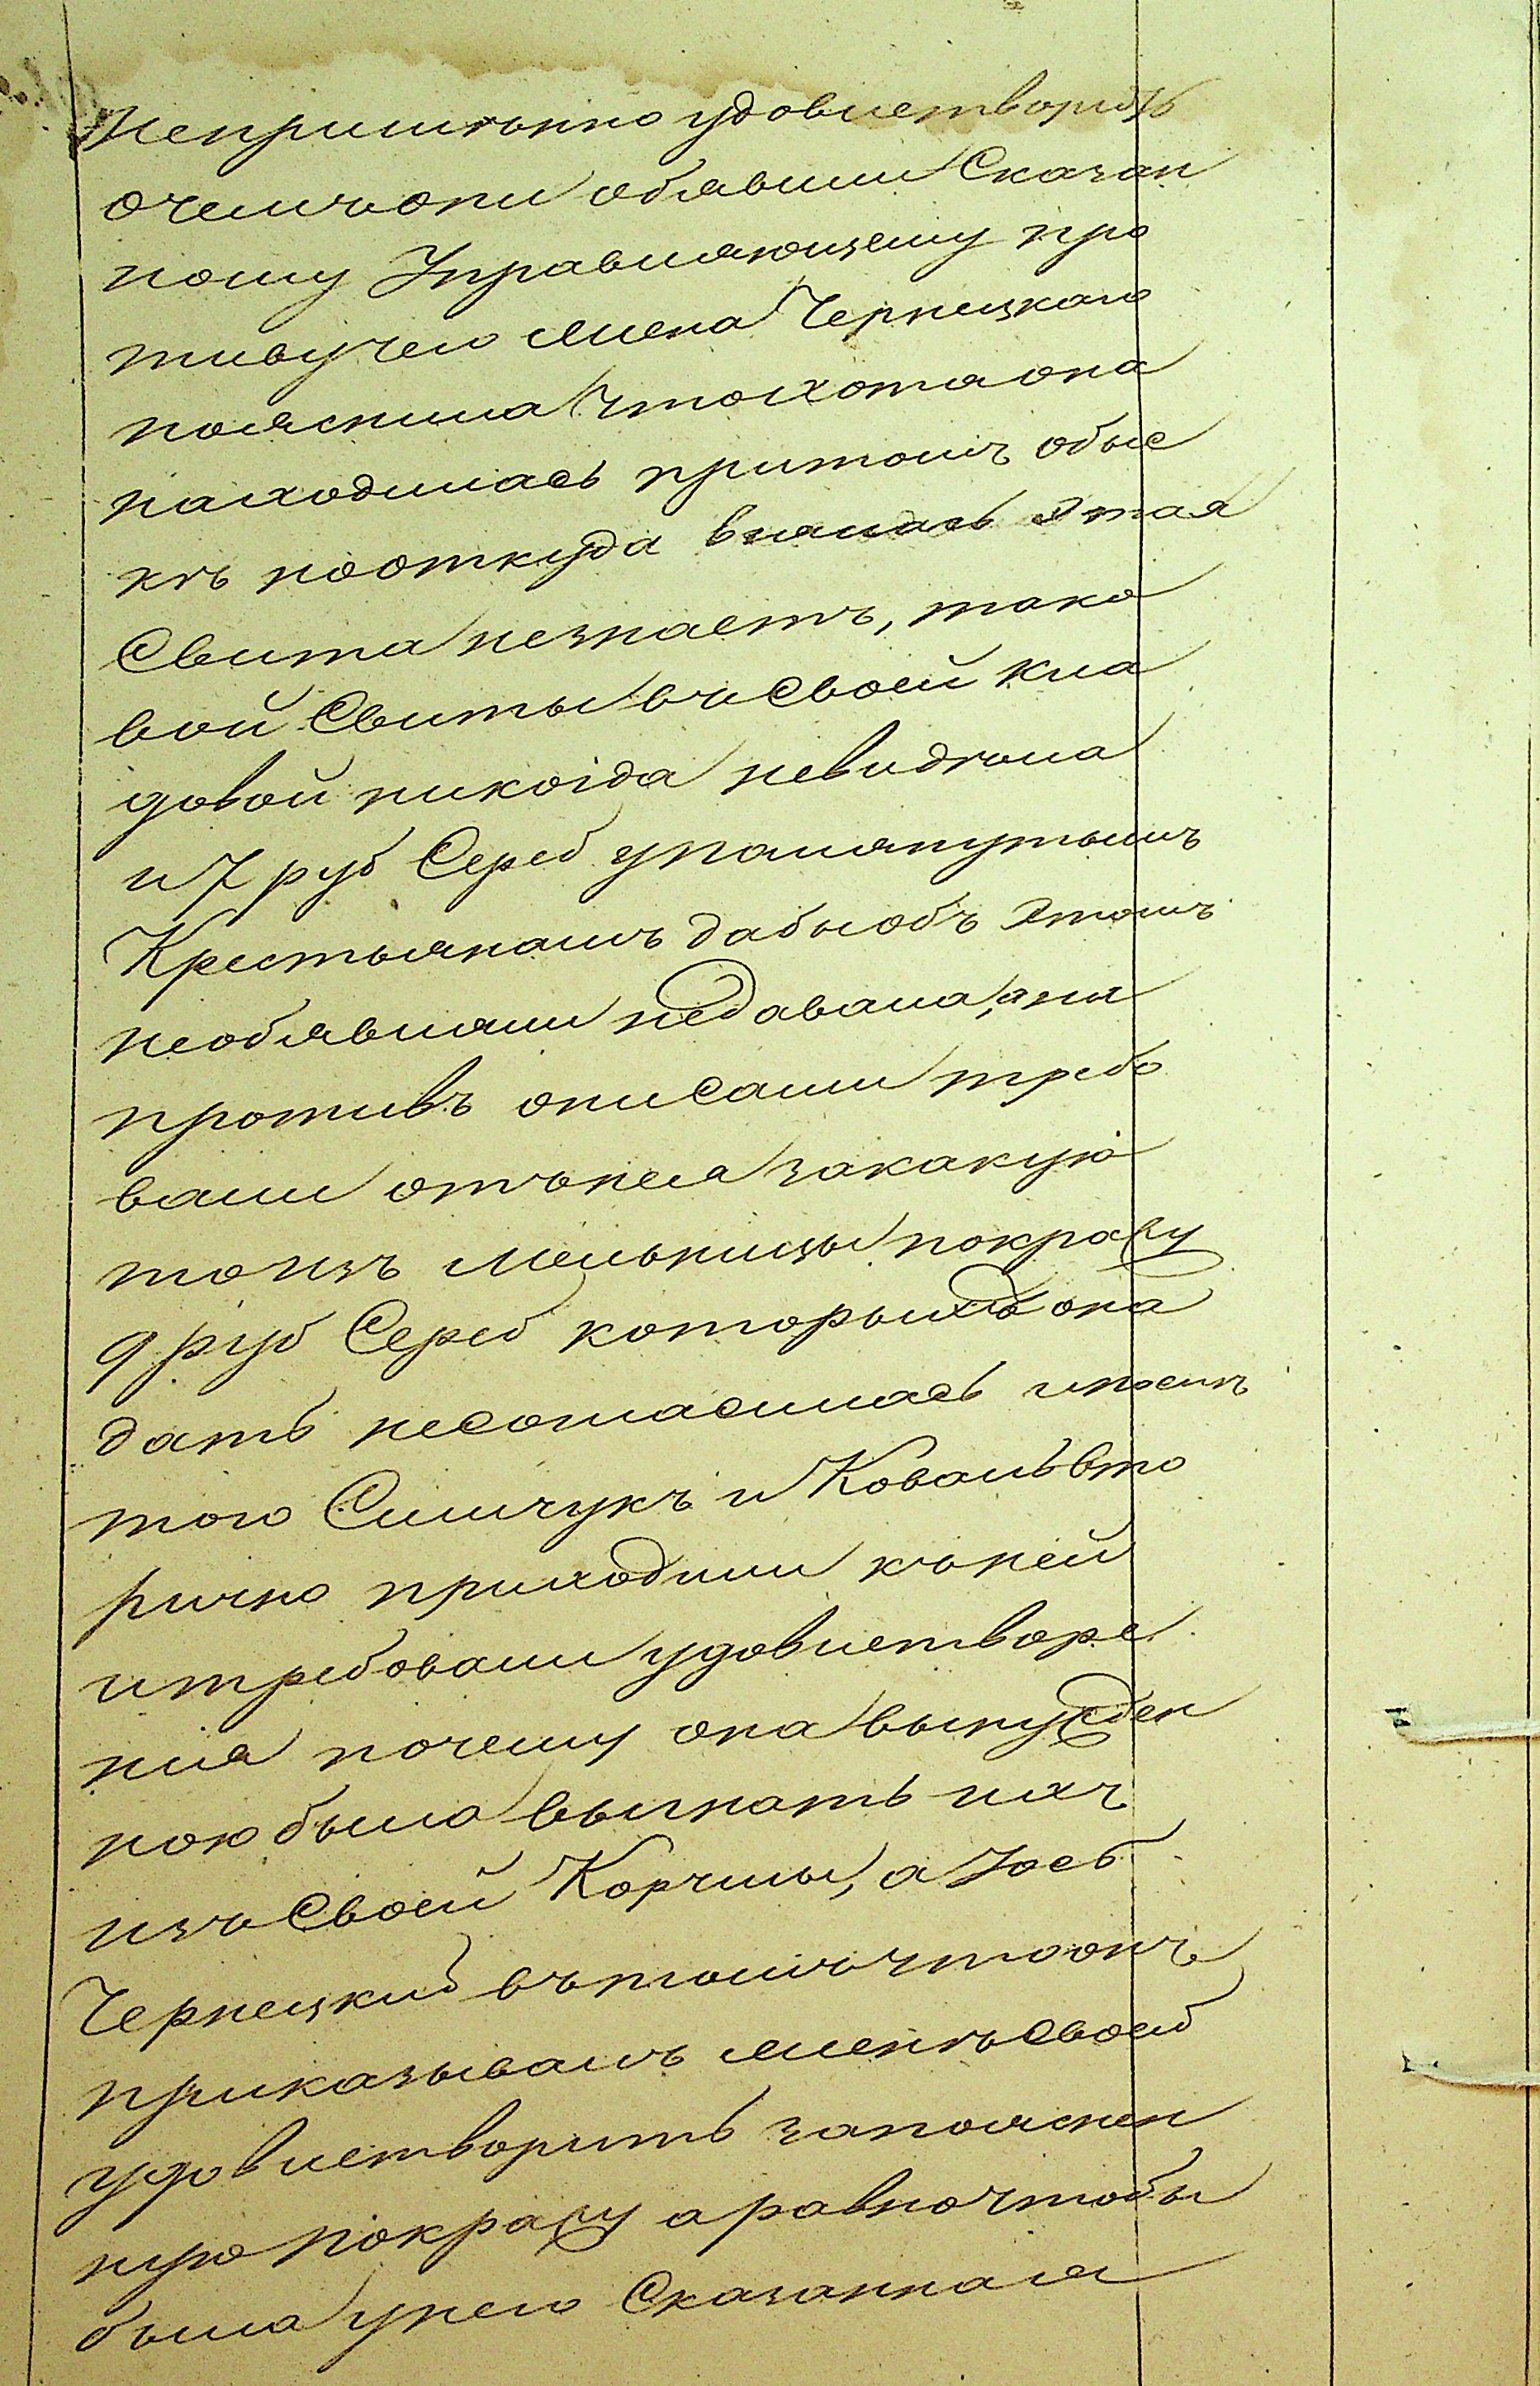 непримѣнно удовлетворить
очемъ они обявили Сказан
ному Управляющему про
тивучего Млена Чернецкаго
пояснила что хотя она
находилась притомъ обыс
кѣ но откуда взялась этая
Свита незнаетъ, тако
вой Свиты въ Своей кла
довой никогда невидѣла
и 7 руб Сереб упамянутымъ
Крестьянамъ дабы объ этомъ
необявляли недавала, а ни
противъ они Сами требо
вали отъ нея за какую
то изъ мельницы покражу
9 руб Сереб которыхъ она
дать несогласилась и кроме
того Симчукъ и Коваль вто
рично приходили къ ней
и требовали удовлетворе
ния почему она вынужден
ною была выгнать ихъ
изъ Своей Корчмы, а Іось
Чернецкий въ томъ что онъ
приказывалъ женѣ Своей
удовлетворить за пояснен
ную покражу а равно чтобы
была у него Сказанная